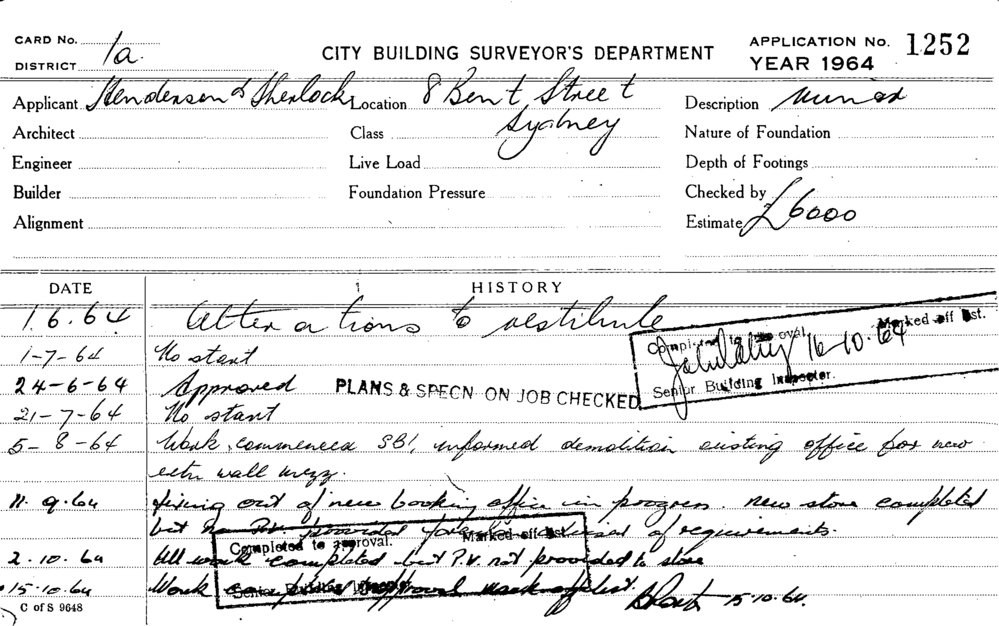 CARD No. 1a.
DISTRICT
CITY BUILDING SURVEYOR'S DEPARTMENT
APPLICATION No. 1252
YEAR 1964
Applicant Henderson & Sherlock Location 8 Bent Street Sydney Description Minor
Architect Class Nature of Foundation
Engineer Live Load Depth of Footings
Builder Foundation Pressure Checked by
Alignment Estimate £6000
DATE HISTORY
1.6.64 Alterations to vestibule
Completed to approval. Marked off list.
16-10-64
Senior Building Inspector.
1-7-64 No start
24-6-64 Approved PLANS & SPECN ON JOB CHECKED
21-7-64 No start
5-8-64 Work commenced SBI informed demolition existing office for new
wall mezz.
11.9.64 fixing out of new booking office in progress. new store completed
but no P.V. provided of requirements.
Completed to approval. Marked off list
2.10.64 All work completed but P.V. not provided to store
15.10.64 Work completed approval mark off list. 15.10.64.
Senior Building Inspector
C of S 9648